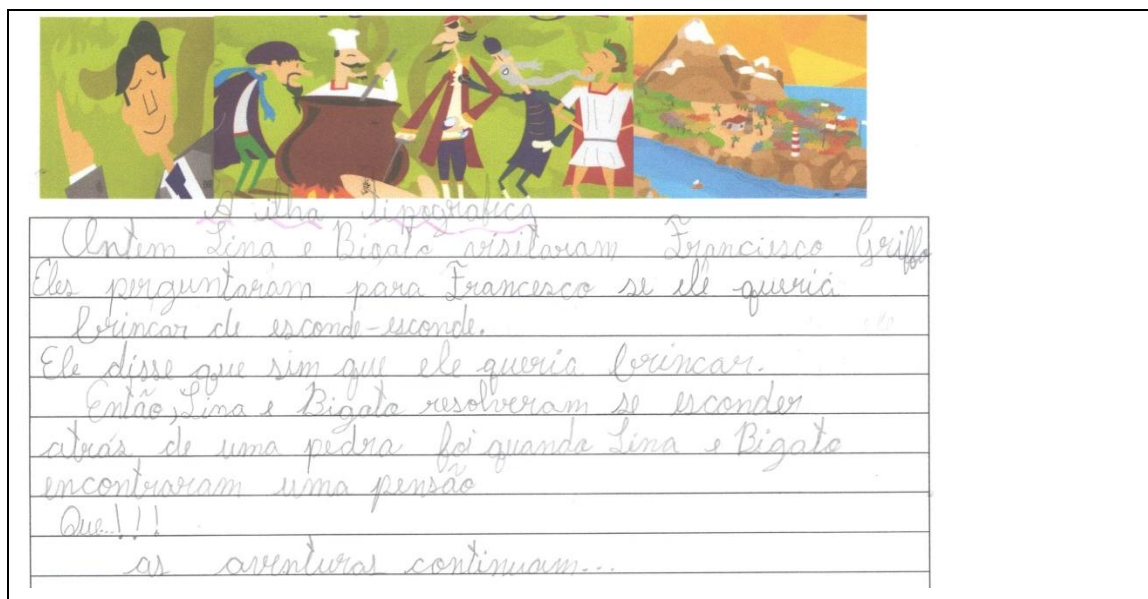 A ilha tipografica
Ontem Lina e Bigato visitaram Francisco Griffo
Eles perguntaram para Francesco se ele queria
brincar de esconde-esconde.
Ele disse que sim que ele queria brincar.
Então, Lina e Bigato resolveram se esconder
atrás de uma pedra foi quando Lina e Bigato
encontraram uma pensão
Que...!!!
as aventuras continuam...